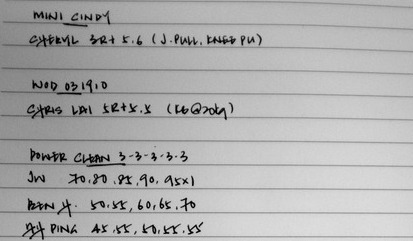 MINI CINDY
CHERYL 3R+ 5.6 (J.PULL, KNEE PU)
WOD 031910
CHRIS LAI 5R+5.5 (KB@20kg)
POWER CLEAN 3-3-3-3-3
JW 70,80,85,90,95x1
BEN 4. 50,55,60,65,70
PING 45,55,50,55,55